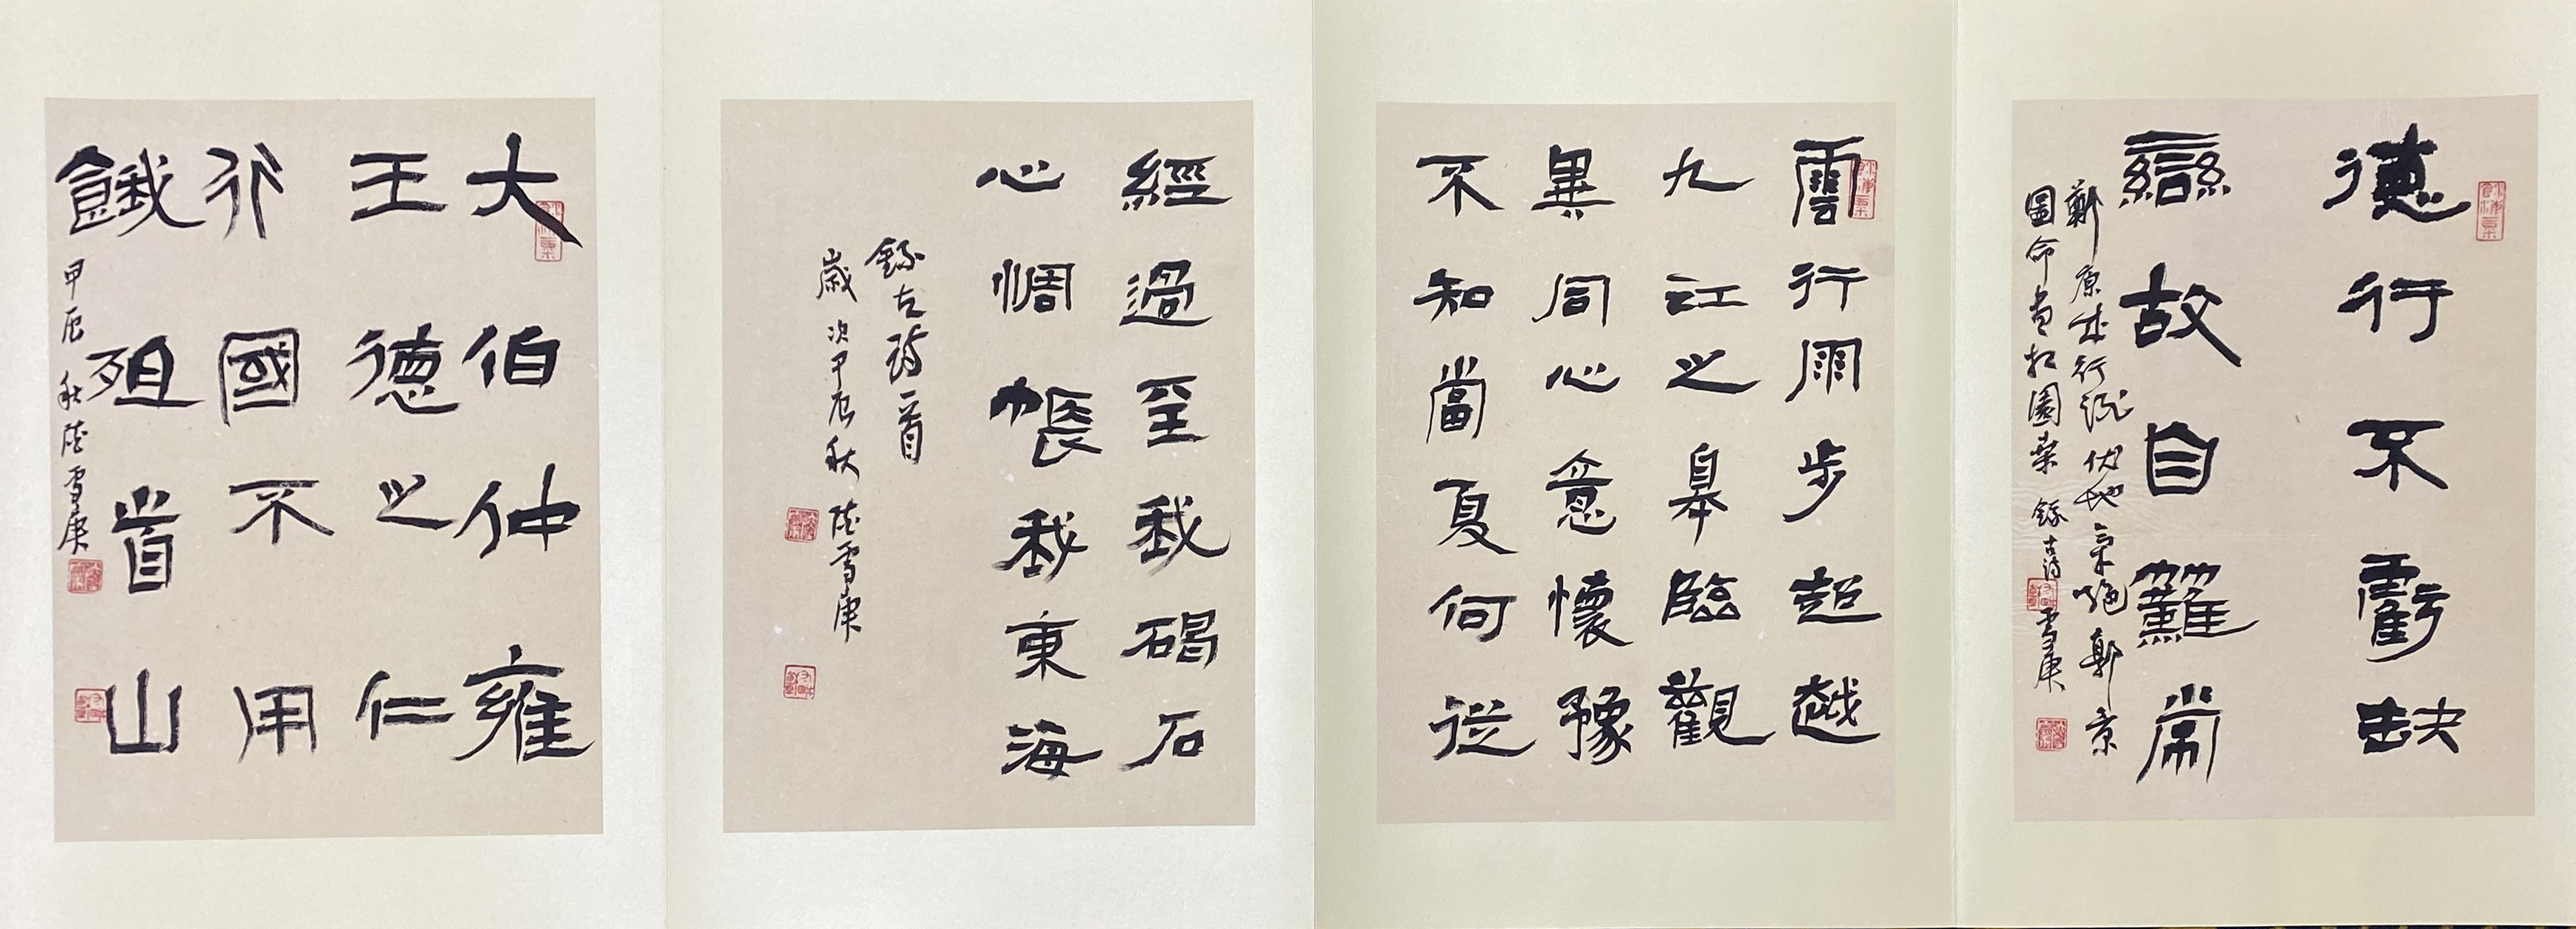 德行不虧缺
變故自難常
鄭原甘行況伏地章絶鄭京
圖命胄於園桑 錄古詩 雪庚
雲行雨步超越
九江之皋臨觀
異同心意懷豫
不知當夏何從
經過至我碣石
心惆悵我東海
錄古詩一首
歲次甲辰秋 陸雪庚
大伯仲雍
王德之仁
行國不用
餓殂首山
甲辰秋陸雪庚